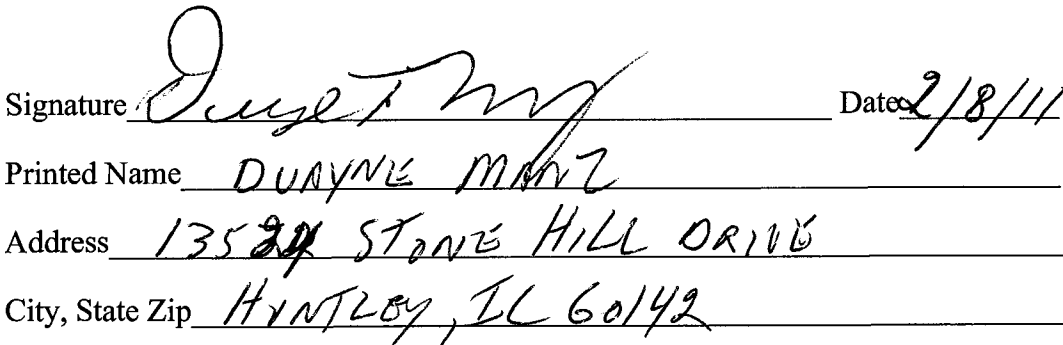 Signature Date 2/8/11
Printed Name DUAYNE MANZ
Address STONE HILL DRIVE
City, State Zip HUNTLEY, IL 60142